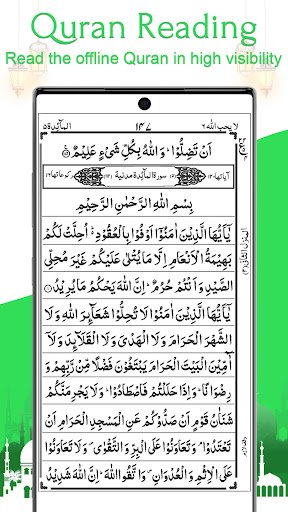 Quran Reading
Read the offline Quran in high visibility
لا یحب الله ٦
١٤٧
المآئدة ٥
اَنْ تَضِلُّوْا ؕ وَاللّٰهُ بِكُلِّ شَیْءٍ عَلِیْمٌ
سورة المآئدة مدنیة
بِسْمِ اللّٰهِ الرَّحْمٰنِ الرَّحِیْمِ
یٰۤاَیُّهَا الَّذِیْنَ اٰمَنُوْۤا اَوْفُوْا بِالْعُقُوْدِ ؕ اُحِلَّتْ لَكُمْ
بَهِیْمَةُ الْاَنْعَامِ اِلَّا مَا یُتْلٰی عَلَیْكُمْ غَیْرَ مُحِلِّی
الصَّیْدِ وَاَنْتُمْ حُرُمٌ ؕ اِنَّ اللّٰهَ یَحْكُمُ مَا یُرِیْدُ
یٰۤاَیُّهَا الَّذِیْنَ اٰمَنُوْا لَا تُحِلُّوْا شَعَآئِرَ اللّٰهِ وَلَا
الشَّهْرَ الْحَرَامَ وَلَا الْهَدْیَ وَلَا الْقَلَآئِدَ وَلَاۤ
آٰمِّیْنَ الْبَیْتَ الْحَرَامَ یَبْتَغُوْنَ فَضْلًا مِّنْ رَّبِّهِمْ وَ
رِضْوَانًا ؕ وَاِذَا حَلَلْتُمْ فَاصْطَادُوْا ؕ وَلَا یَجْرِمَنَّكُمْ
شَنَاٰنُ قَوْمٍ اَنْ صَدُّوْكُمْ عَنِ الْمَسْجِدِ الْحَرَامِ اَنْ
تَعْتَدُوْا ۘ وَتَعَاوَنُوْا عَلَی الْبِرِّ وَالتَّقْوٰی ۪ وَلَا تَعَاوَنُوْا
عَلَی الْاِثْمِ وَالْعُدْوَانِ ۪ وَاتَّقُوا اللّٰهَ ؕ اِنَّ اللّٰهَ شَدِیْدُ